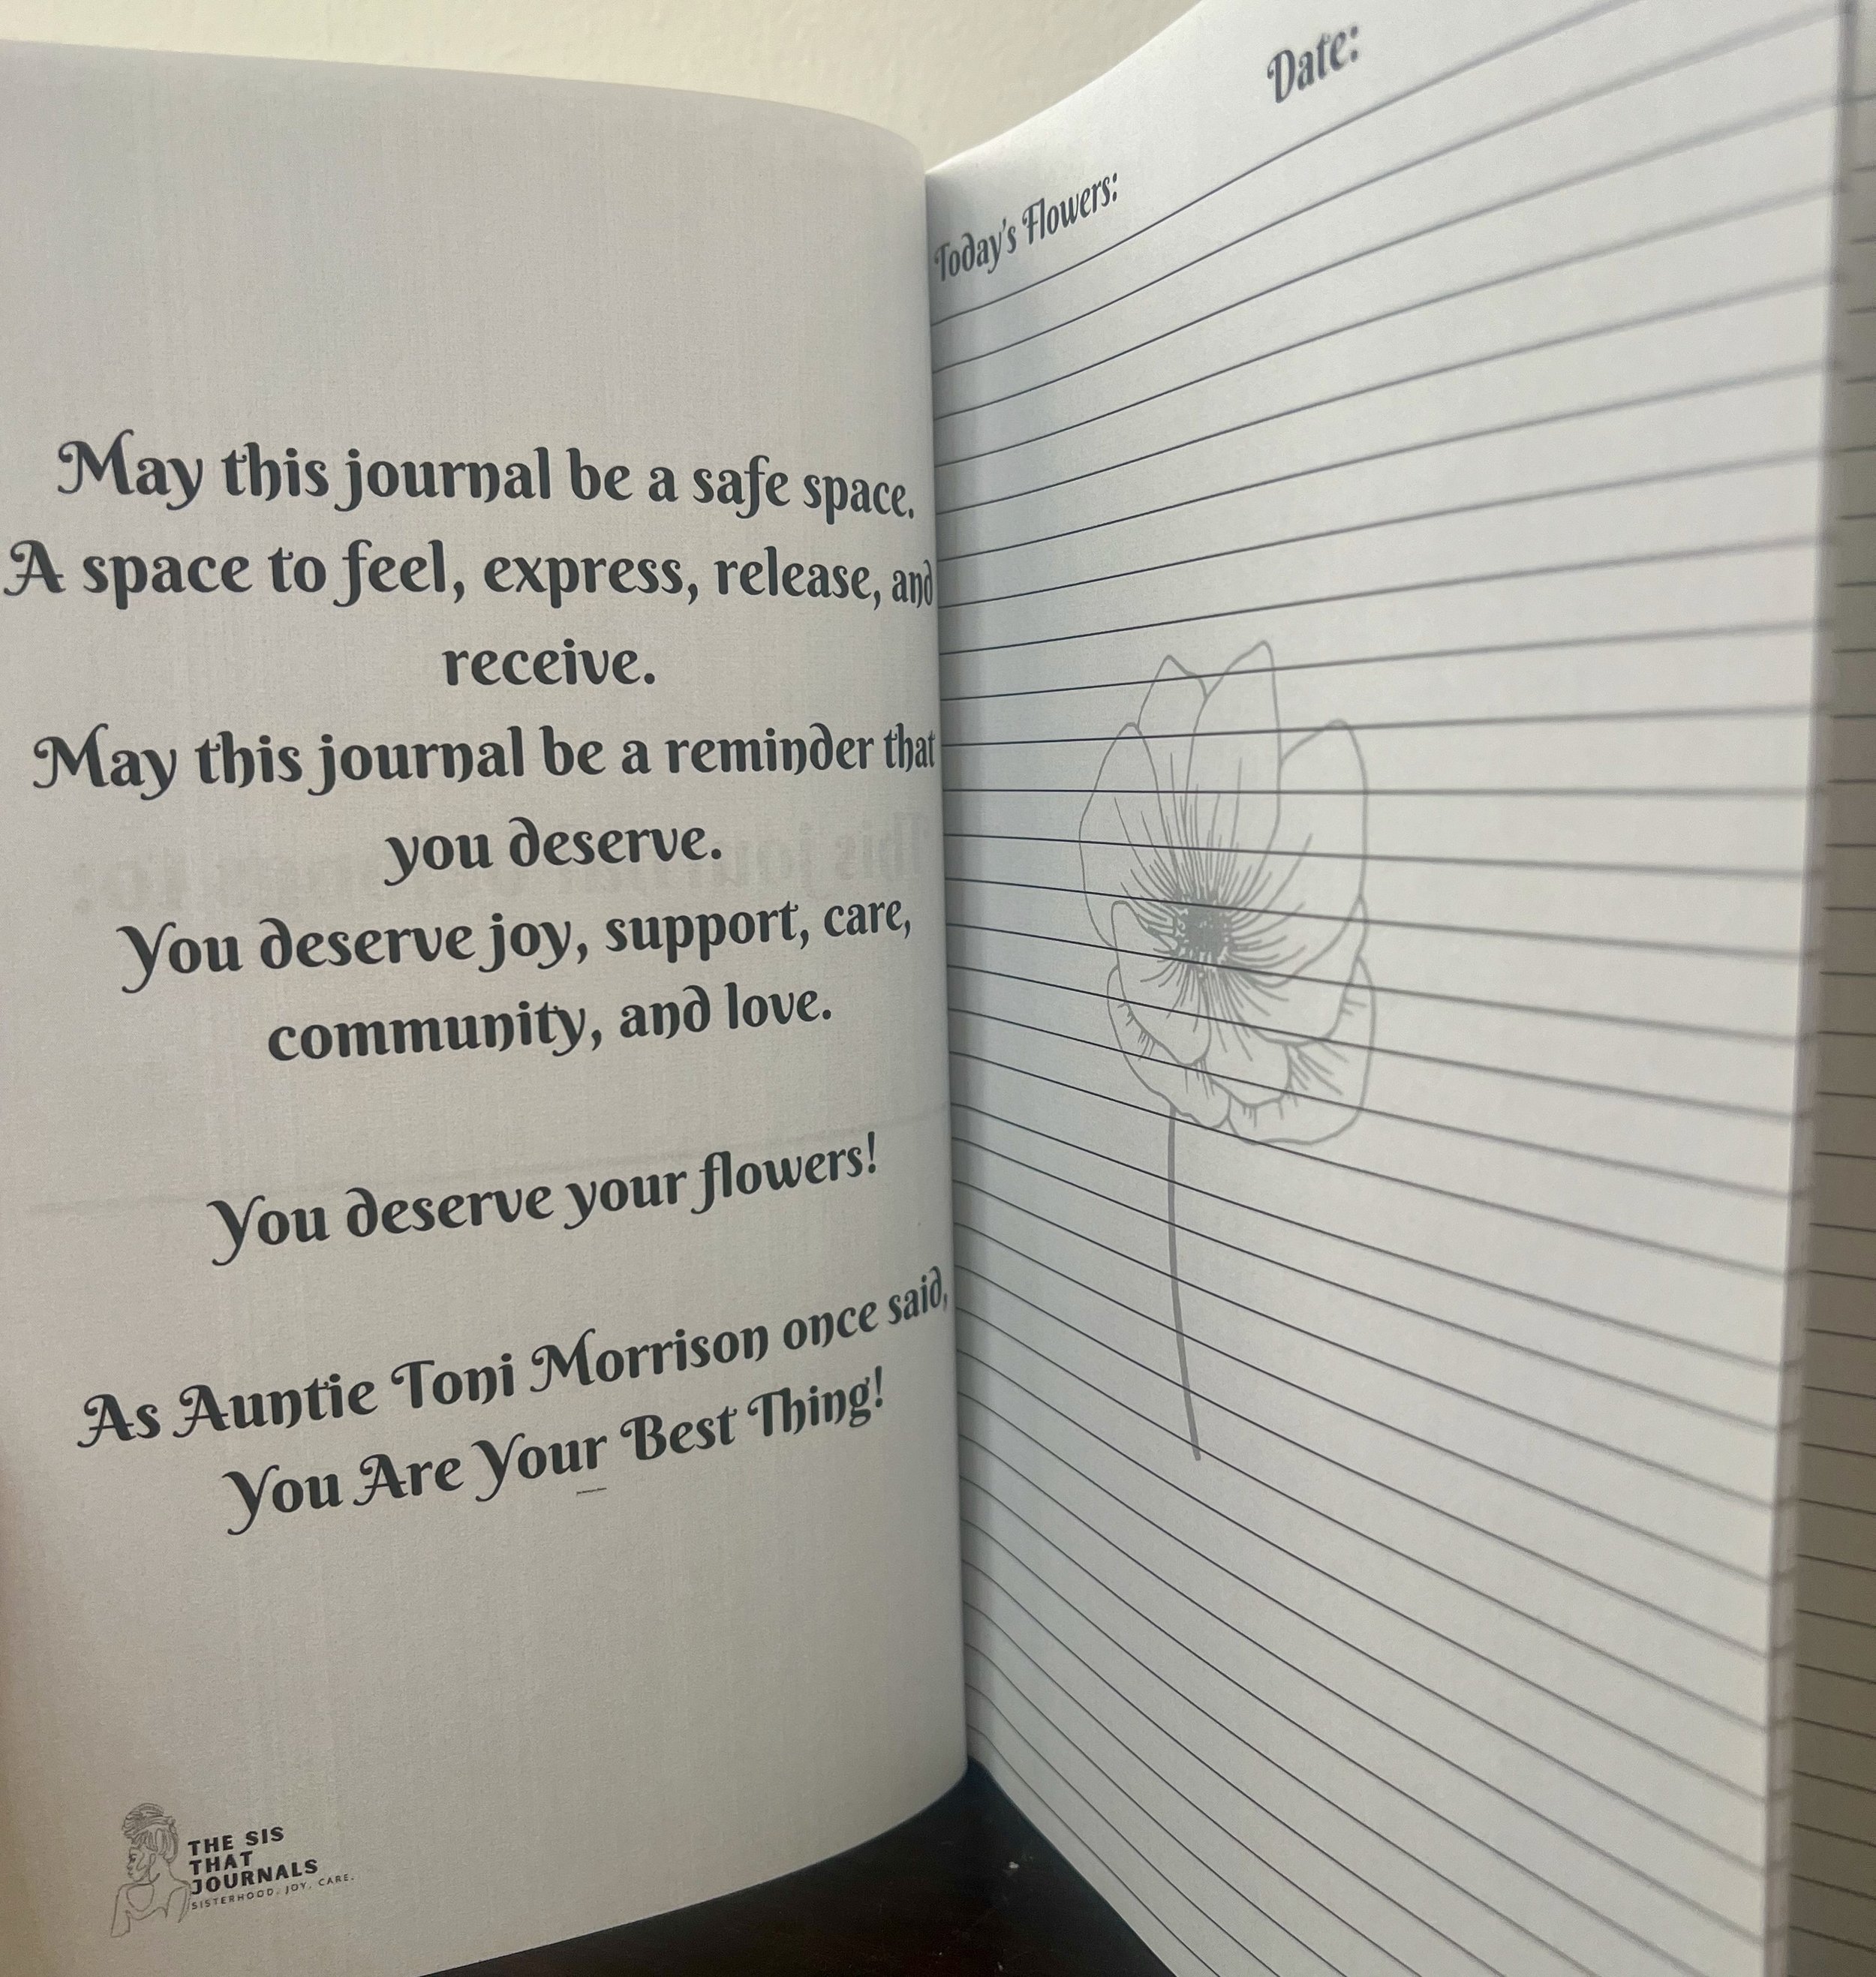 May this journal be a safe space.
A space to feel, express, release, and
receive.
May this journal be a reminder that
you deserve.
You deserve joy, support, care,
community, and love.
You deserve your flowers!
As Auntie Toni Morrison once said,
You Are Your Best Thing!
THE SIS
THAT
JOURNALS
SISTERHOOD. JOY. CARE.
Date:
Today's Flowers: